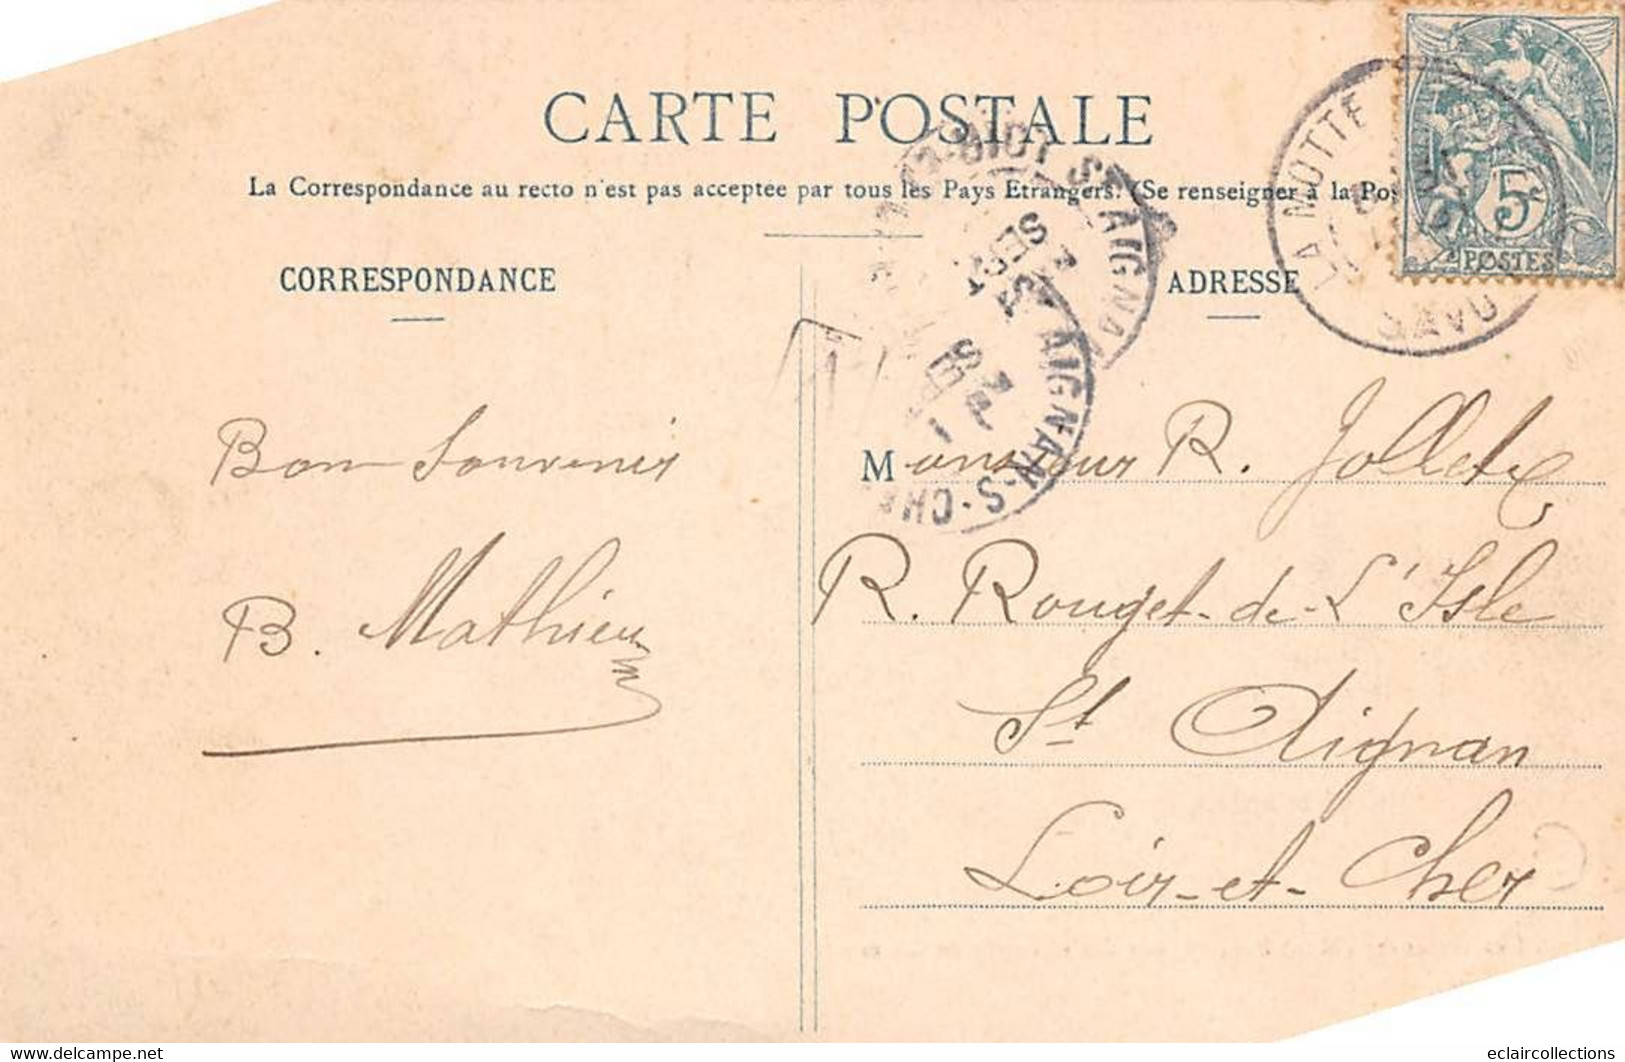 CARTE POSTALE
La Correspondance au recto n'est pas acceptée par tous les Pays Etrangers. (Se renseigner à la Pos
CORRESPONDANCE
ADRESSE
LA MOTTE
SAVO
5c
POSTES
ST AIGNAN
SEPT
AIGNAN-S-CHER
Bon Souvenir
B. Mathieu
Monsieur R. Jollet
R. Rouget-de-L'Isle
St Aignan
Loir-et-Cher
www.delcampe.net
eclaircollections